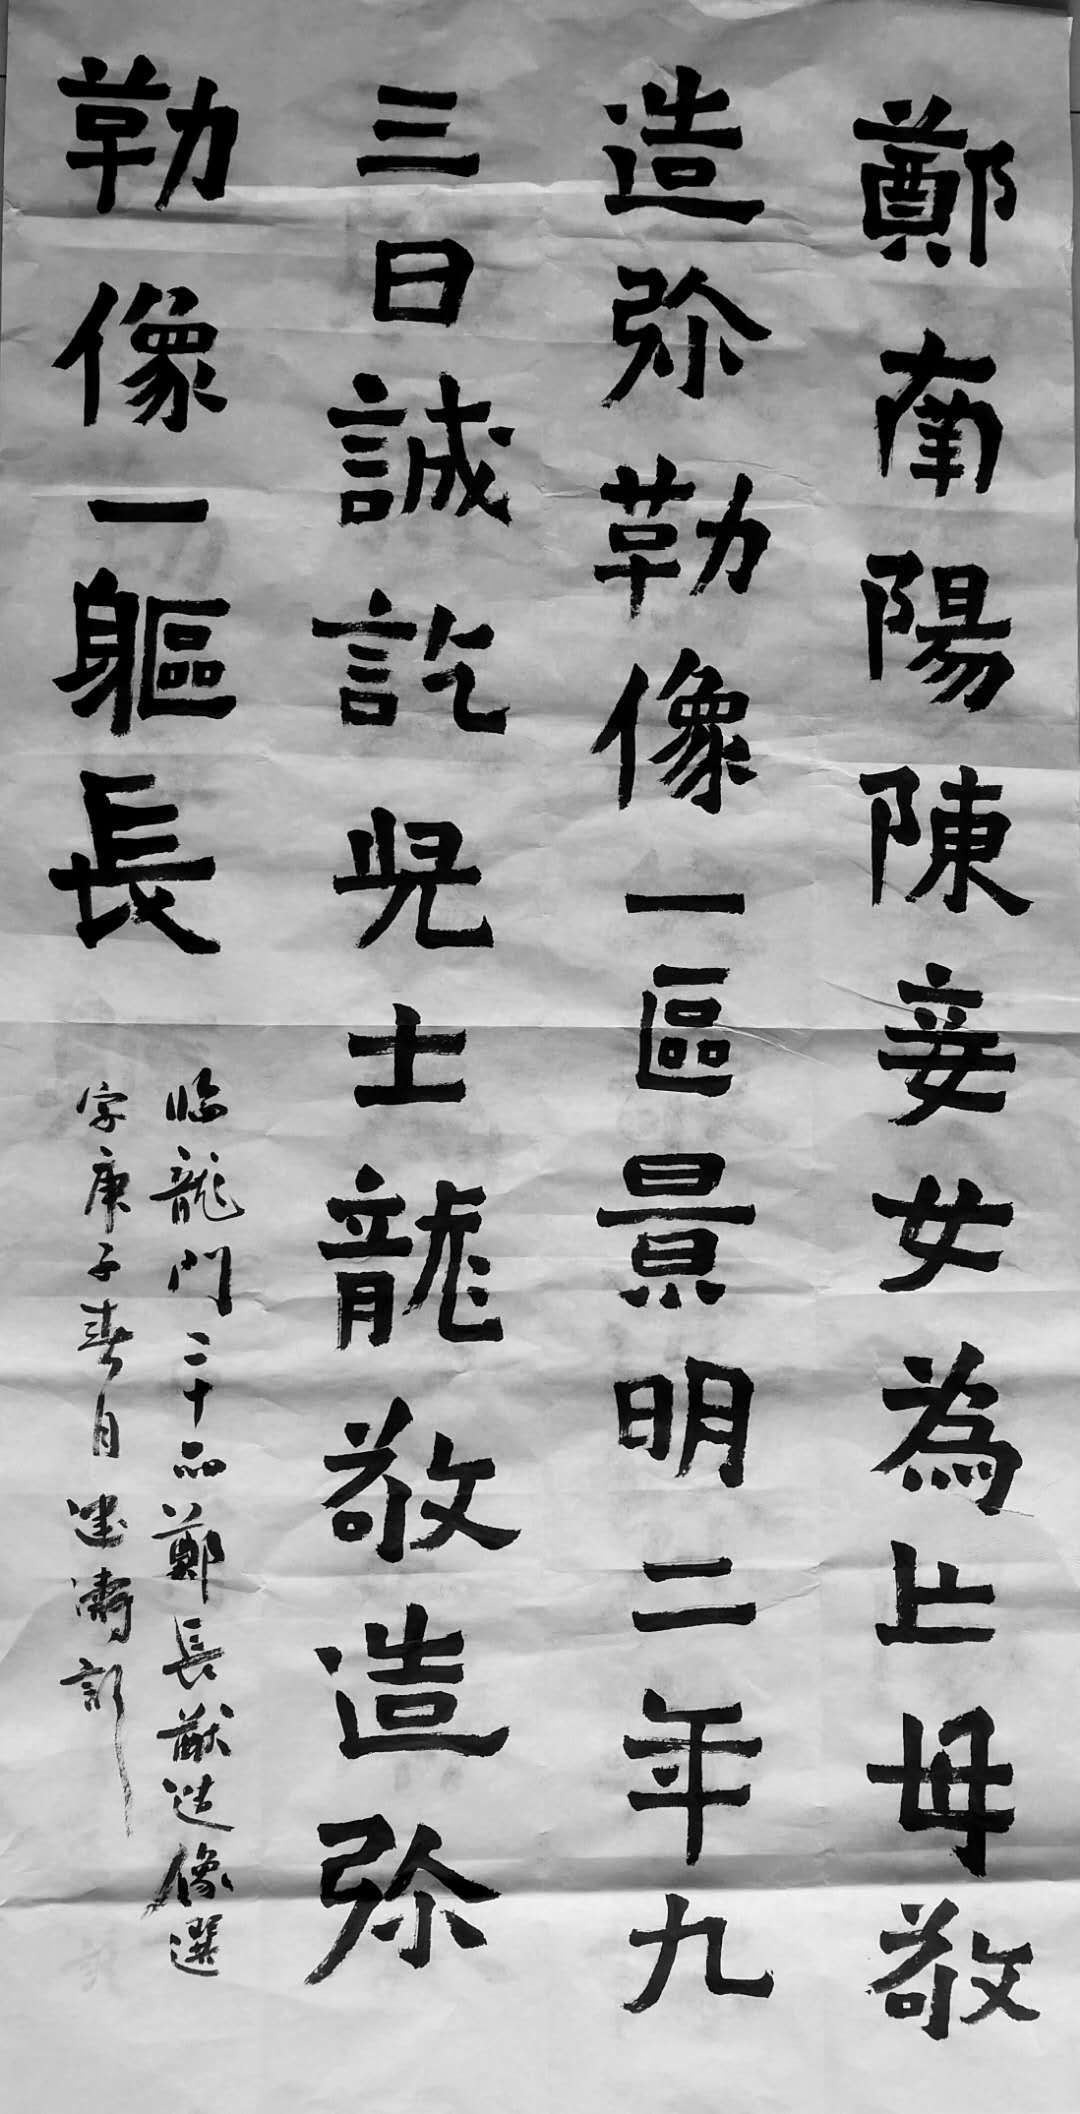 鄭南陽陳妾女為亡母敬
造弥勒像一區景明二年九
三日誠訖兒士龍敬造弥
勒像一軀長
临龍門二十品鄭長猷造像選
字庚子春月建濤記